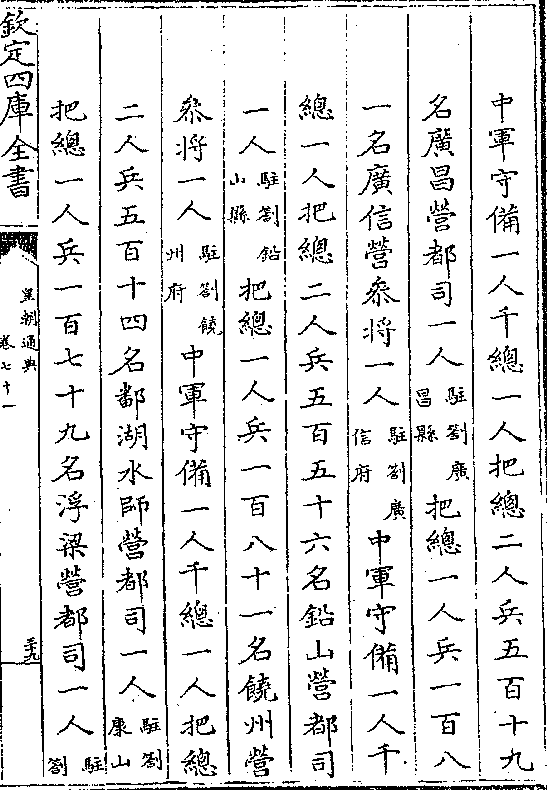 中軍守備一人千總一人把總二人兵五百十九
名廣昌營都司一人駐劄廣昌縣把總一人兵一百八
一名廣信營叅將一人駐劄廣信府中軍守備一人千
總一人把總二人兵五百五十六名鉛山營都司
一人駐劄鉛山縣把總一人兵一百八十一名饒州營
叅將一人駐劄饒州府中軍守備一人千總一人把總
二人兵五百十四名鄱湖水師營都司一人駐劄康山
把總一人兵一百七十九名浮梁營都司一人駐劄
欽定四庫全書
皇朝通典
卷七十一
三九